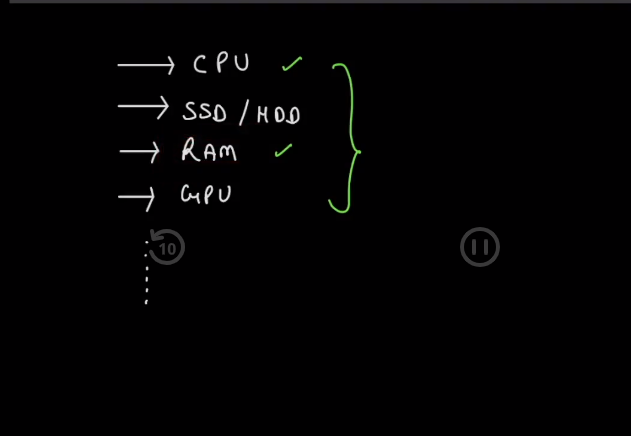 → CPU ✓
→ SSD / HDD
→ RAM ✓
→ GPU
10